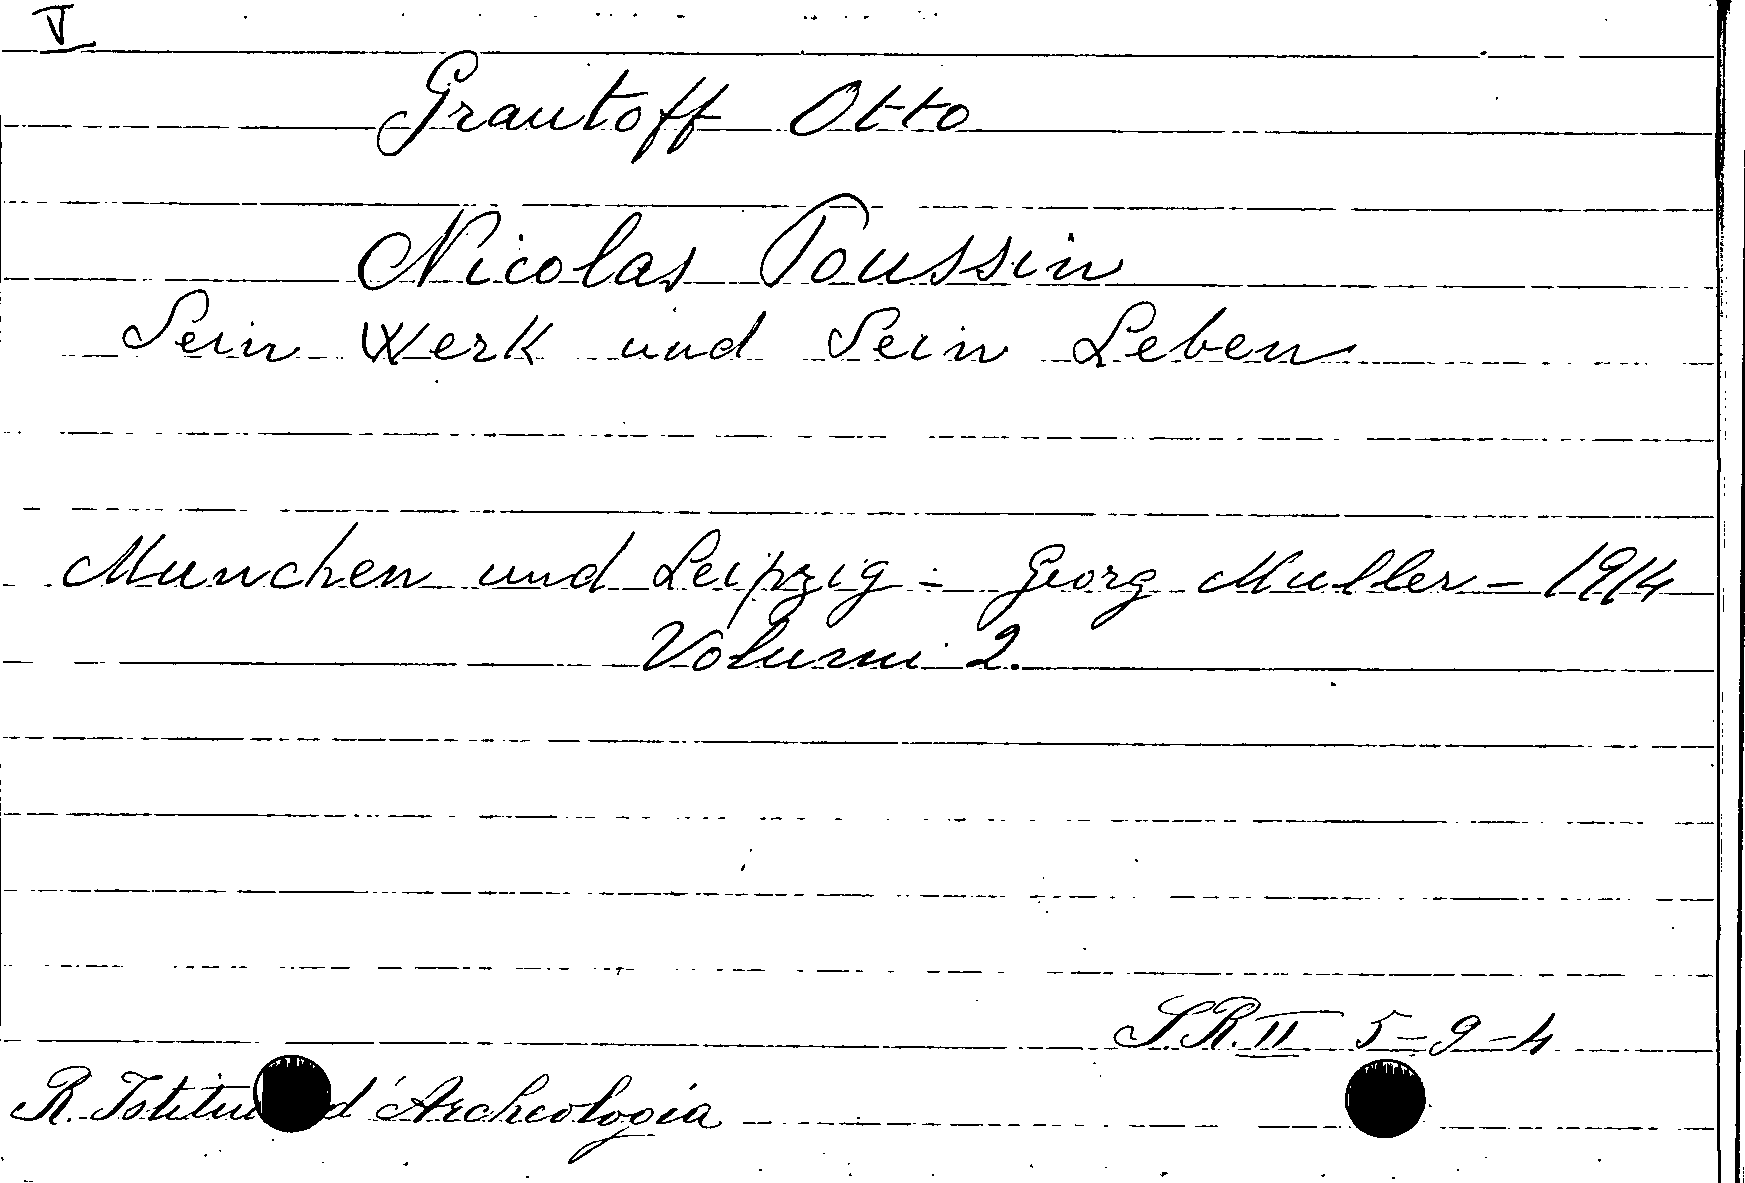 V
Grautoff Otto
Nicolas Poussin
Sein Werk und Sein Leben
Munchen und Leipzig - Georg Muller - 1914
Volumi 2.
S.R. II 5-9-4
R. Istitu d'Archeologia